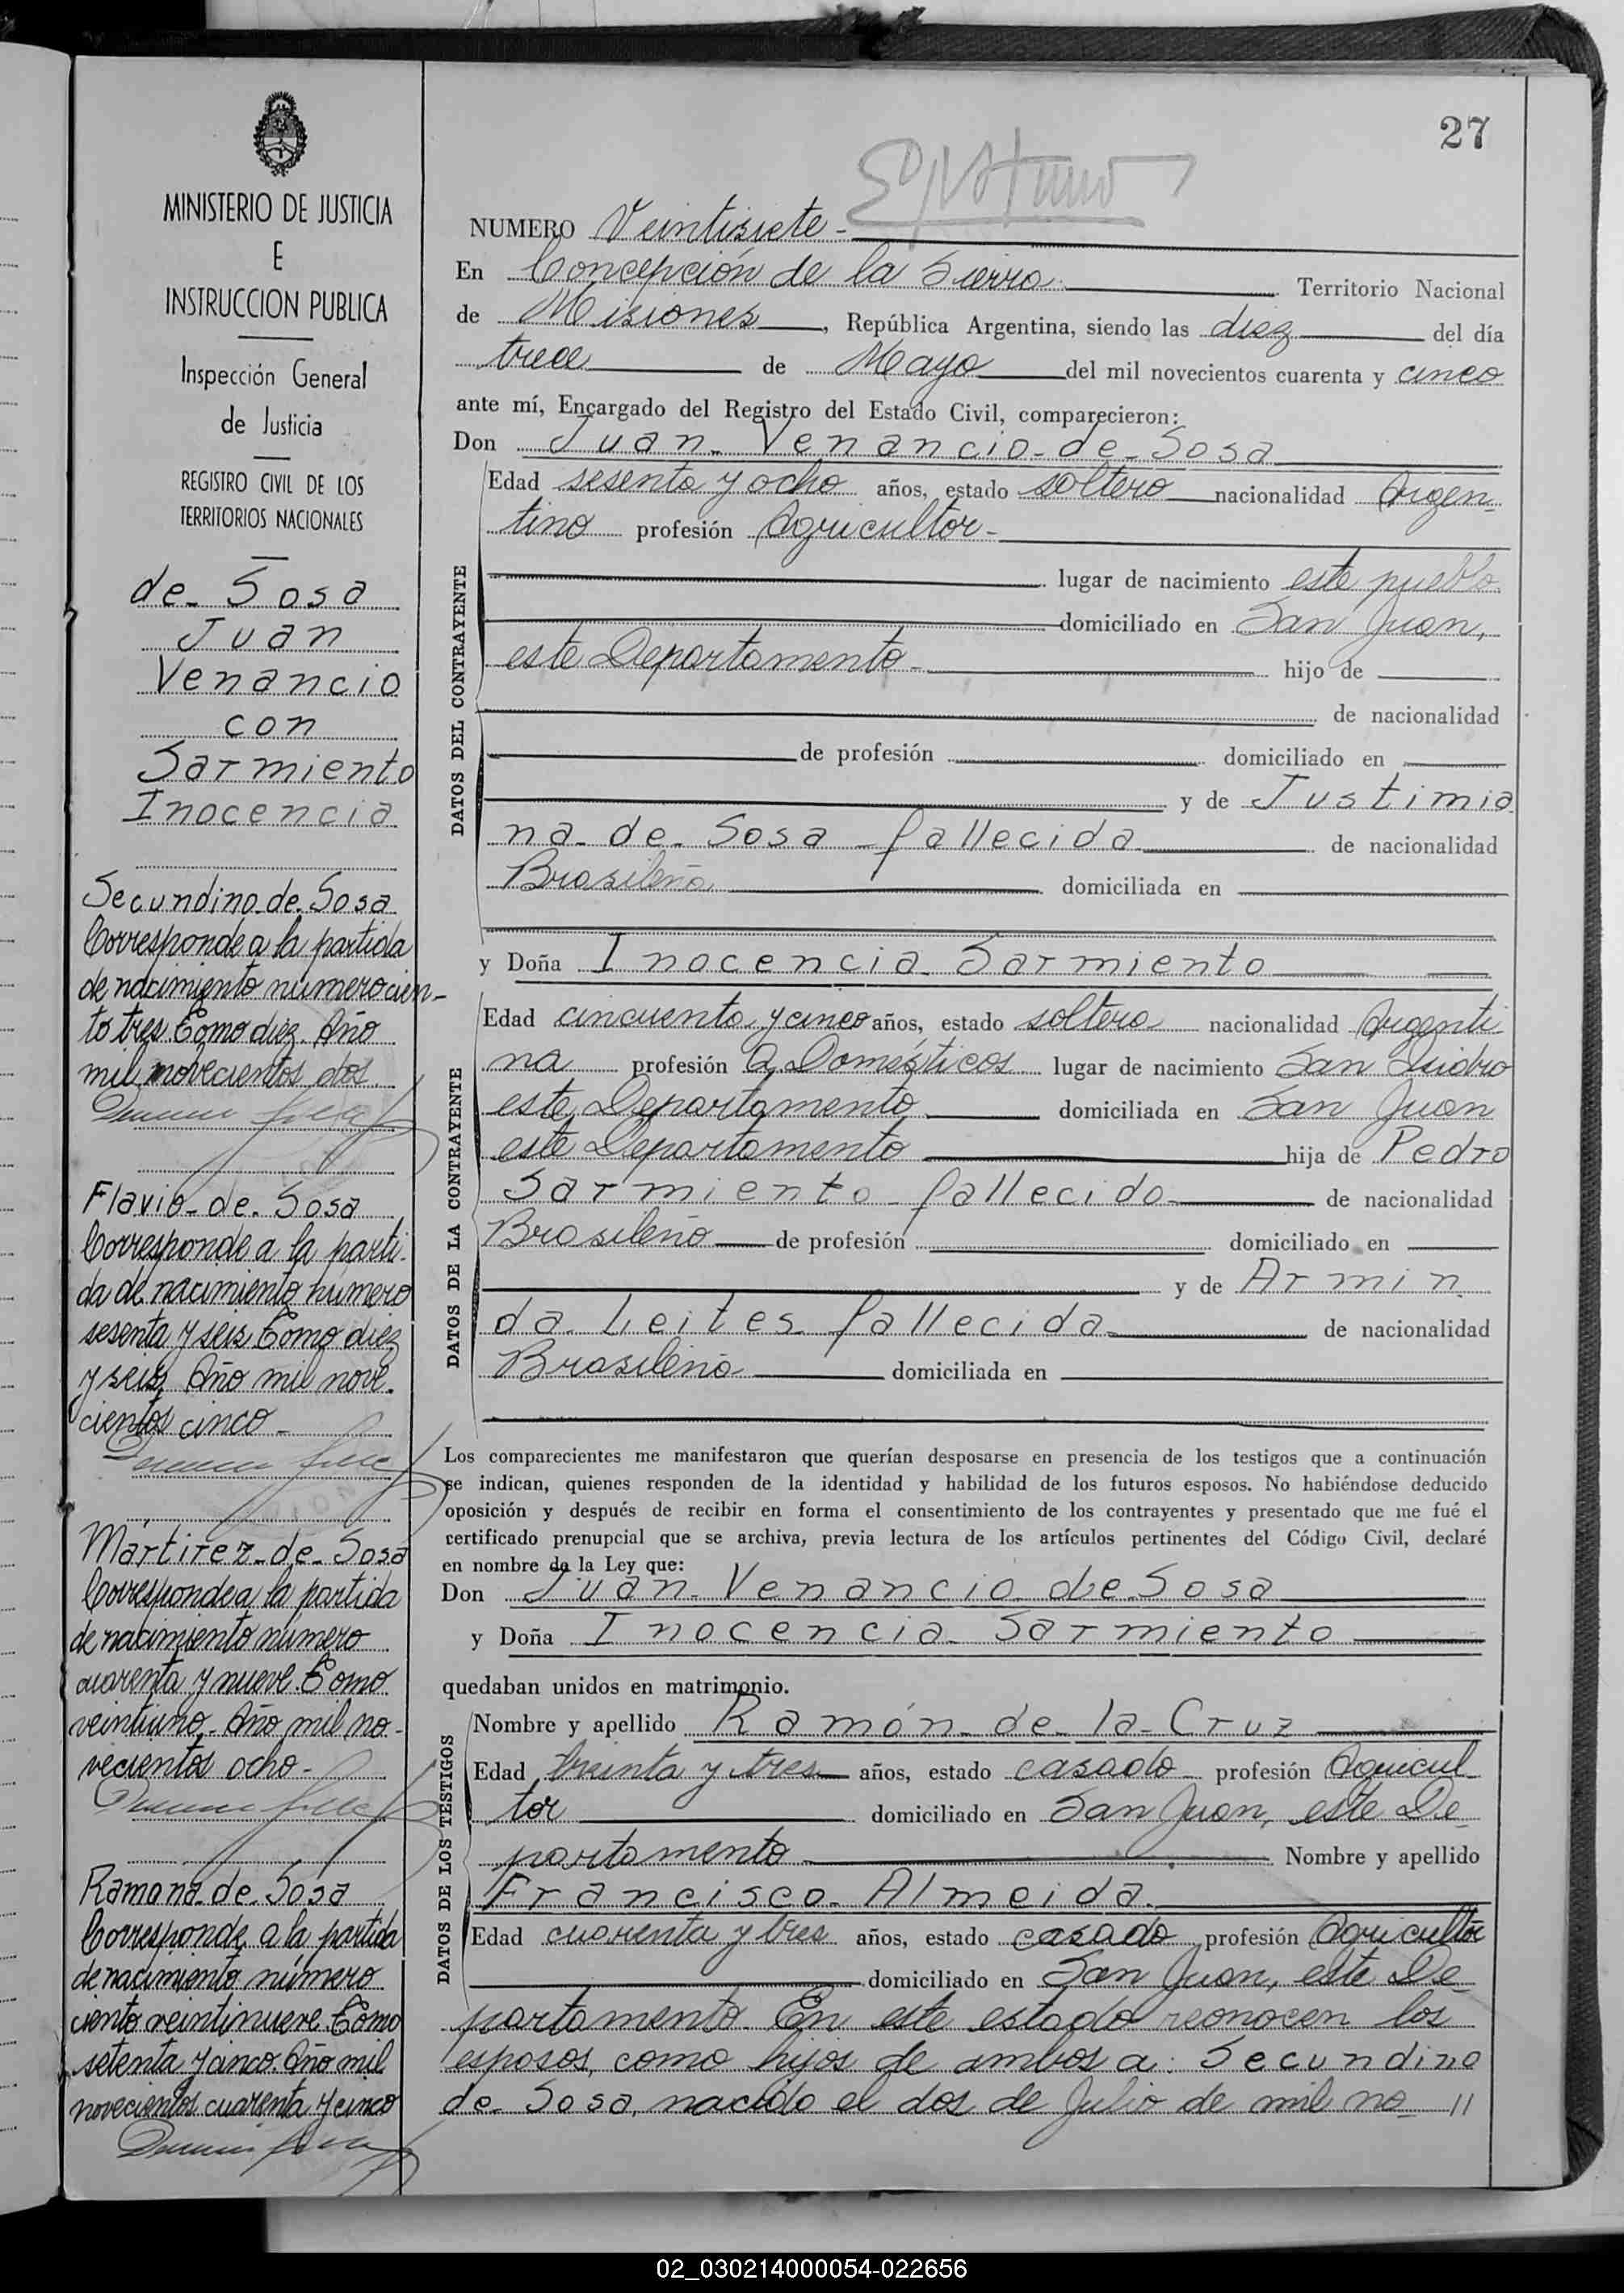 27
MINISTERIO DE JUSTICIA
E
INSTRUCCION PUBLICA
Inspección General
de Justicia
REGISTRO CIVIL DE LOS
TERRITORIOS NACIONALES
de Sosa
Juan
Venancio
con
Sarmiento
Inocencia
Secundino de Sosa
Corresponde a la partida
de nacimiento número cien-
to tres Tomo diez. Año
mil novecientos dos
Flavio de Sosa
Corresponde a la parti-
da de nacimiento número
sesenta y seis Tomo diez
y seis Año mil nove-
cientos cinco -
Mártirez de Sosa
Corresponde a la partida
de nacimiento número
cuarenta y nueve. Tomo
veintiuno - Año mil no-
vecientos ocho -
Ramona de Sosa
Corresponde a la partida
de nacimiento número
ciento veintinueve Tomo
setenta y cinco. Año mil
novecientos cuarenta y cinco
NUMERO Veintisiete -
En Concepción de la Sierra Territorio Nacional
de Misiones, República Argentina, siendo las diez del día
trece de Mayo del mil novecientos cuarenta y cinco
ante mí, Encargado del Registro del Estado Civil, comparecieron:
Don Juan Venancio de Sosa
DATOS DEL CONTRAYENTE
Edad sesenta y ocho años, estado soltero nacionalidad Argen-
tino profesión Agricultor -
lugar de nacimiento este pueblo
domiciliado en San Juan,
este Departamento - hijo de
de nacionalidad
de profesión domiciliado en
y de Justimia
na de Sosa - fallecida de nacionalidad
Brasileña domiciliada en
y Doña Inocencia Sarmiento
DATOS DE LA CONTRAYENTE
Edad cincuenta y cinco años, estado soltera nacionalidad Argenti
na profesión Q. Domésticos lugar de nacimiento San Isidro
este Departamento domiciliada en San Juan
este Departamento hija de Pedro
Sarmiento - fallecido de nacionalidad
Brasileño de profesión domiciliado en
y de Armin
da Leites fallecida de nacionalidad
Brasileña domiciliada en
Los comparecientes me manifestaron que querían desposarse en presencia de los testigos que a continuación
se indican, quienes responden de la identidad y habilidad de los futuros esposos. No habiéndose deducido
oposición y después de recibir en forma el consentimiento de los contrayentes y presentado que me fué el
certificado prenupcial que se archiva, previa lectura de los artículos pertinentes del Código Civil, declaré
en nombre de la Ley que:
Don Juan Venancio de Sosa
y Doña Inocencia Sarmiento
quedaban unidos en matrimonio.
DATOS DE LOS TESTIGOS
Nombre y apellido Ramón de la Cruz
Edad treinta y tres años, estado casado profesión Agricul
tor domiciliado en San Juan, este De-
partamento Nombre y apellido
Francisco Almeida.
Edad cuarenta y tres años, estado casado profesión Agricultor
domiciliado en San Juan, este De-
partamento. En este estado reonocen los
esposos, como hijos de ambos a: Secundino
de Sosa, nacido el dos de Julio de mil no - //
02_030214000054-022656